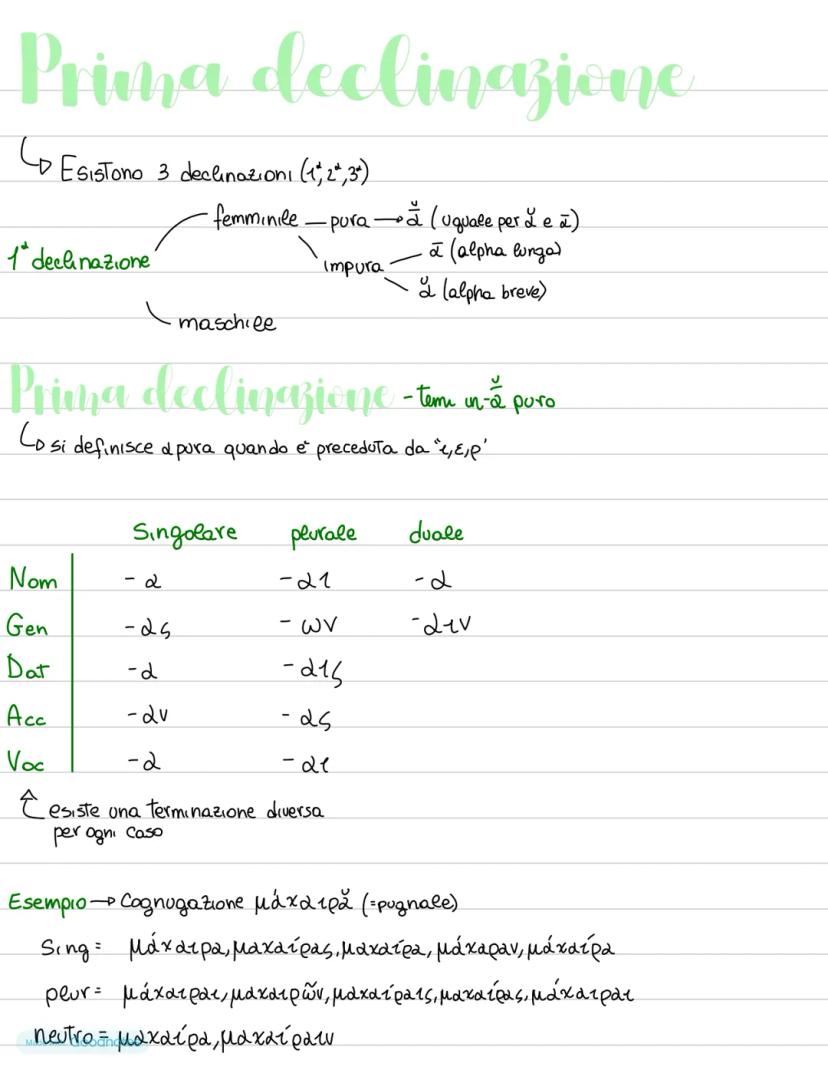 Prima declinazione
↳ Esistono 3 declinazioni (1ª, 2ª, 3ª)
femminile — pura → ᾰ̄ (uguale per ᾰ e ᾱ)
ᾱ (alpha lunga)
1ª declinazione
impura
ᾰ (alpha breve)
maschile
Prima declinazione - temi in -ᾰ̄ puro
↳ si definisce α pura quando è preceduta da "ι, ε, ρ"
Singolare plurale duale
Nom -α -αι -α
Gen -ας -ων -αιν
Dat -α -αις
Acc -αν -ας
Voc -α -αι
↑ esiste una terminazione diversa
per ogni caso
Esempio → Cognugazione μάχαιρᾰ (=pugnale)
Sing = μάχαιρα, μαχαίρας, μαχαίρα, μάχαραν, μάχαίρα
plur = μάχαιραι, μαχαιρῶν, μαχαίραις, μαχαίρας, μάχαιραι
neutro = μαχαίρα, μαχαίραιν